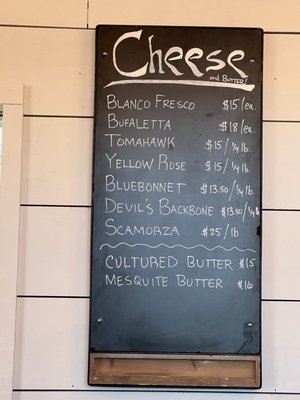 Cheese
and Butter!
Blanco Fresco $15/ea.
Bufaletta $18/ea.
Tomahawk $15/¼ lb.
Yellow Rose $15/¼ lb.
Bluebonnet $13.50/¼ lb.
Devil's Backbone $13.50/¼ lb
Scamorza $25/lb.
Cultured Butter $15
Mesquite Butter $16